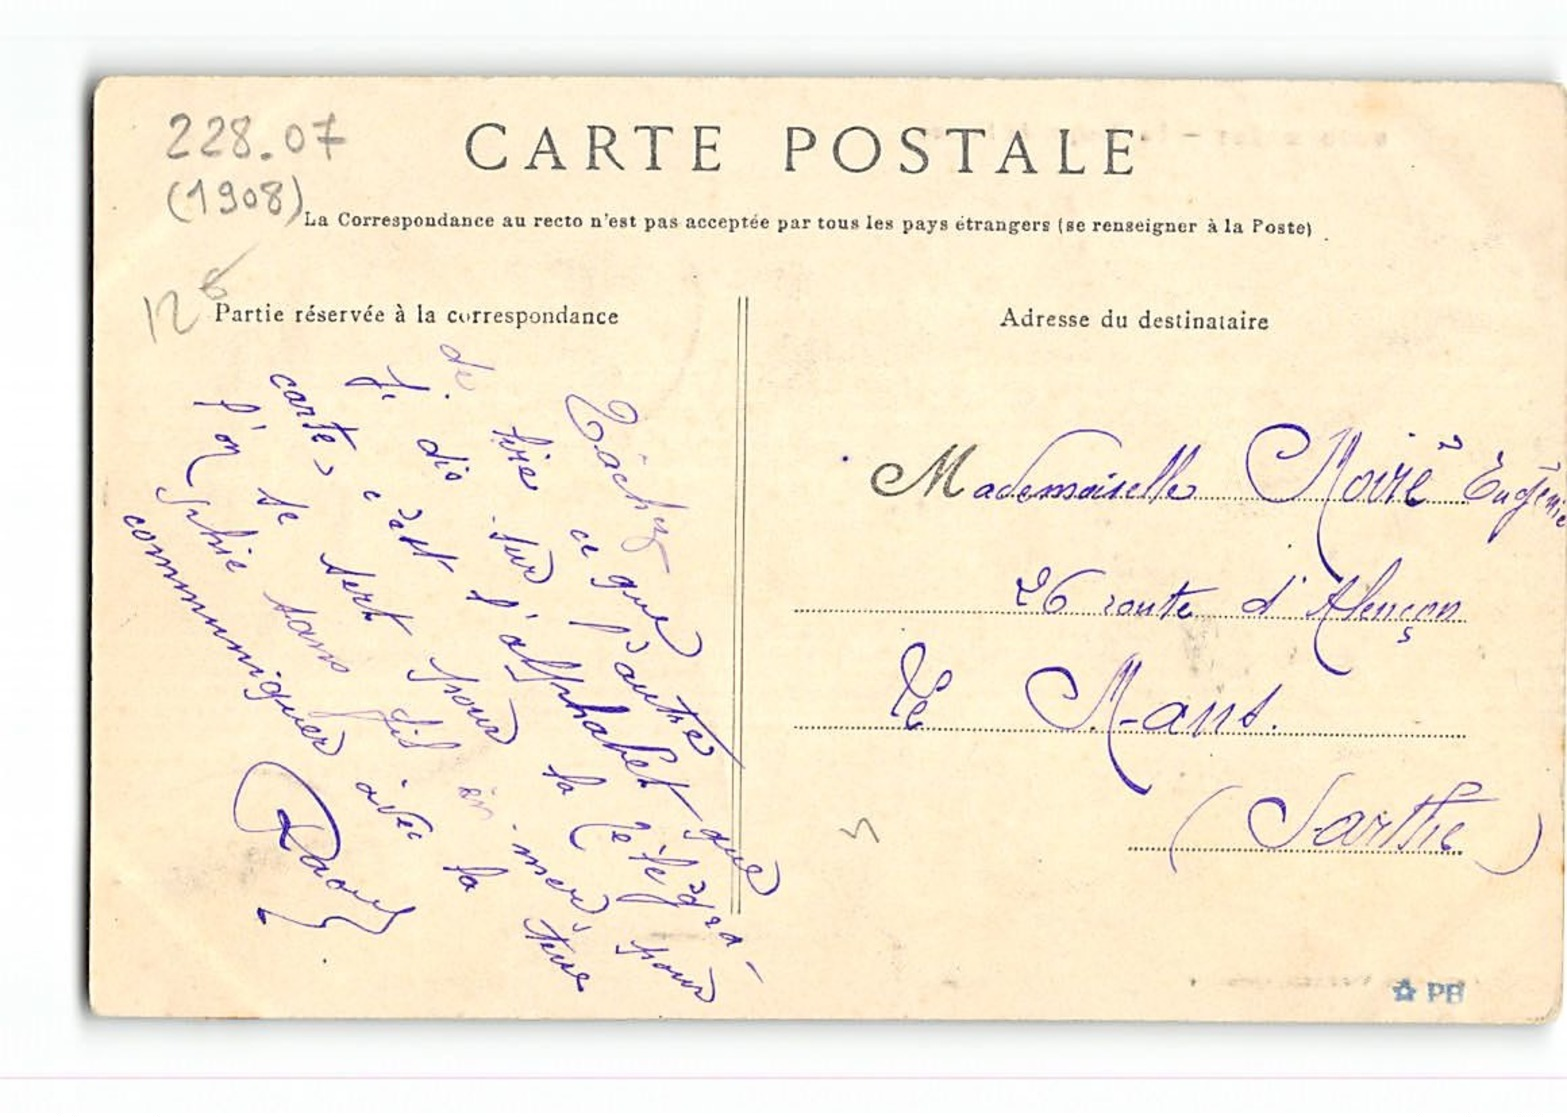 228.07
(1908)
CARTE POSTALE
La Correspondance au recto n'est pas acceptée par tous les pays étrangers (se renseigner à la Poste)
12
Partie réservée à la correspondance
Tâchez
de lire ce que
Je dis sur l'autre
carte, c'est l'alphabet que
l'on se sert pour la télégra-
phie sans fil en mer, pour
communiquer avec la terre
Raoul
Adresse du destinataire
Mademoiselle Eugénie
26 route d'Alençon
Le Mans.
(Sarthe)
PB